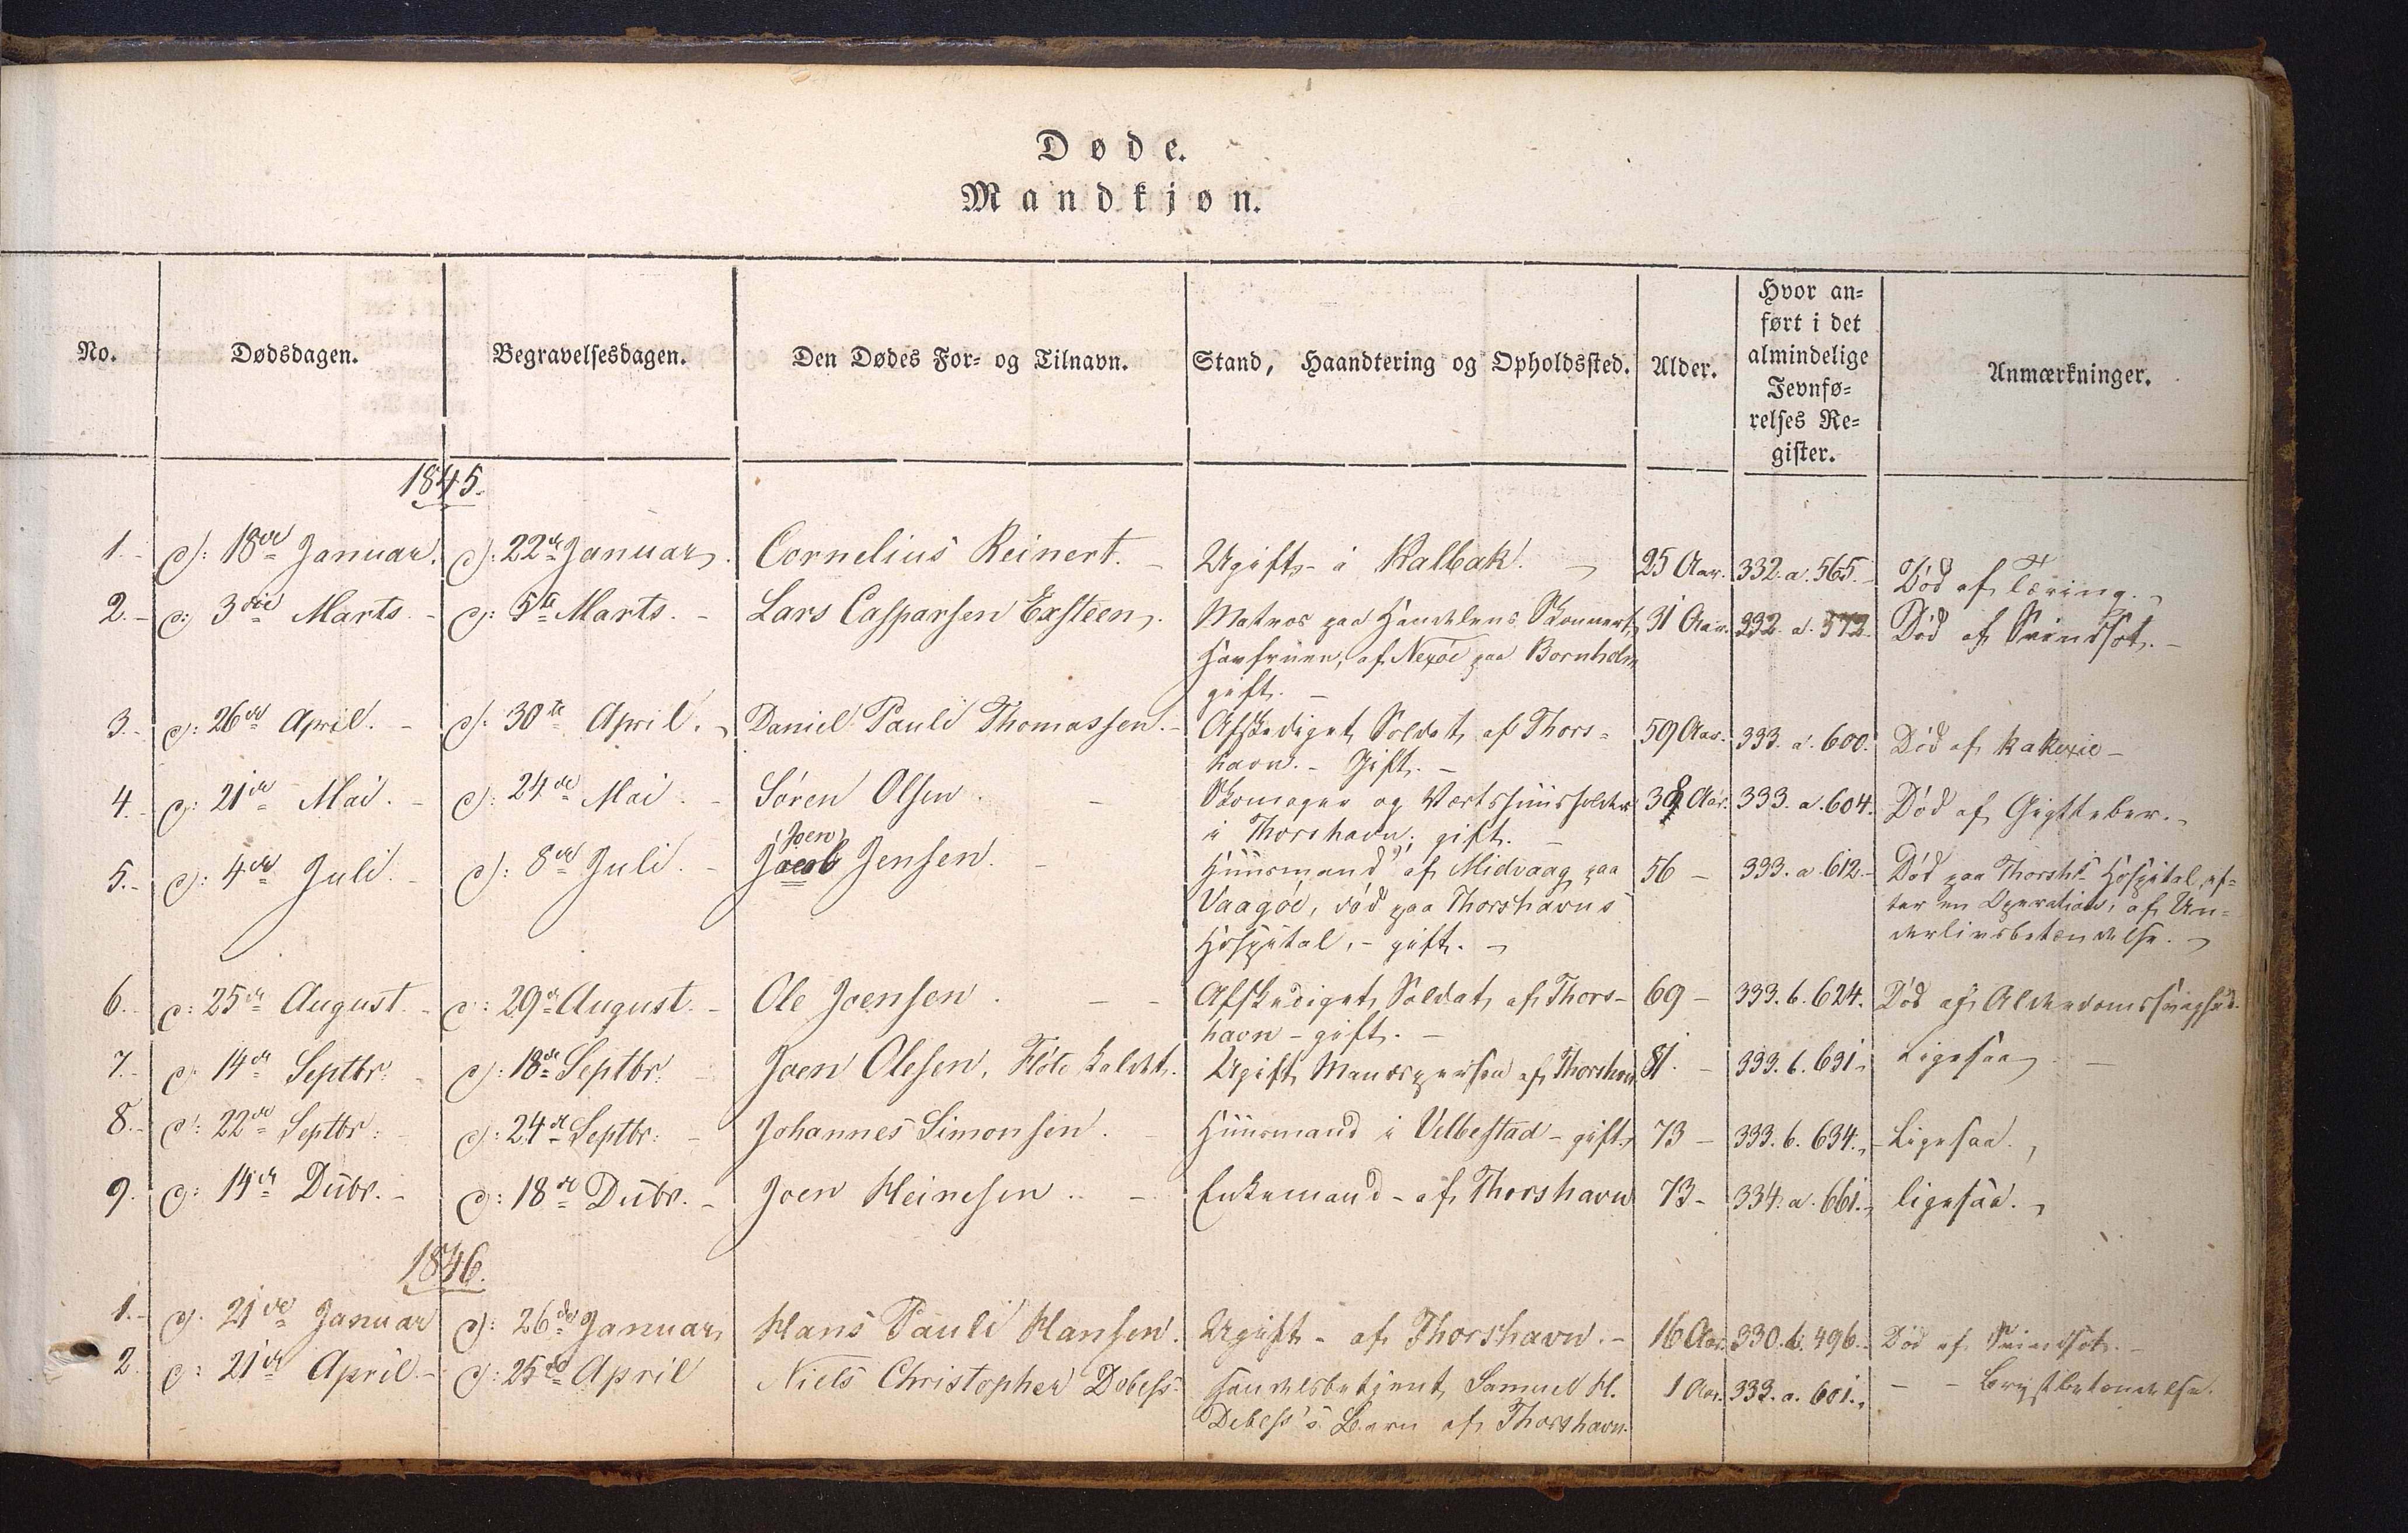 Døde.
Mandkjøn.
No. Dødsdagen. Begravelsesdagen. Den Dødes For- og Tilnavn. Stand, Haandtering og Opholdssted. Alder. Hvor an-
ført i det
almindelige
Jevnfø-
relses Re-
gister. Anmærkninger.
1845.
1. d: 18de Januar. d: 22de Januar. Cornelius Reinert. - Ugift - i Kalbak. 25 Aar. 332. a. 565. Død af Tæring.
2. d: 3die Marts. - d: 5te Marts. - Lars Casparsen Exsteen. Matros paa Handelens Skonnert 31 Aar. 332. a. 572. Død af Svindsot. -
Havfruen, af Nexöe paa Bornholm
gift. -
3. d: 26de April. - d: 30te April. Daniel Pauli Thomassen. - Afskediget Soldat af Thors= 59 Aar. 333. a. 600. Død af Kakexie -
havn. - Gift. -
4. d: 21de Mai. - d: 24de Mai. - Søren Olsen. - Skomager og Værtshuusholder 38 Aar. 333. a. 604. Død af Gigtfeber.
i Thorshavn; gift. -
Joen
5. d: 4de Juli. - d: 8de Juli. - Jacob Jensen. - Huusmand af Midvaag paa 56 - 333. a. 612. Død paa Thorsh. Hospital, ef=
Vaagöe, død paa Thorshavns ter en Operation, af Un=
Hospital, - gift. - derlivsbetændelse.
6. d: 25de August. - d: 29de August. - Ole Joensen. - - Afskediget Soldat af Thors- 69 - 333. b. 624. Død af Alderdomssvaghed.
havn - gift. -
7. d: 14de Septbr: - d: 18de Septbr: - Joen Olesen, Flöte kaldet. Ugift Mandsperson af Thorshavn 81. - 333. b. 631. Ligesaa -
8. d: 22de Septbr: - d: 24de Septbr: - Johannes Simonsen. - Huusmand i Velbestad - gift. 73 - 333. b. 634. - Ligesaa.
9. d: 14de Dcbr. - d: 18de Dcbr. - Joen Heinesen. - Enkemand - af Thorshavn 73 - 334. a. 661. ligesaa.
1846.
1. d. 21de Januar d: 26de Januar Hans Pauli Hansen. Ugift - af Thorshavn. - 16 Aar. 330. b. 496. Død af Svindsot. -
2. d: 21de April. - d: 25de April Niels Christopher Debess Handelsbetjent Samuel H. 1 Aar. 333. a. 601. - - Brystbetændelse.
Debess's Barn af Thorshavn.